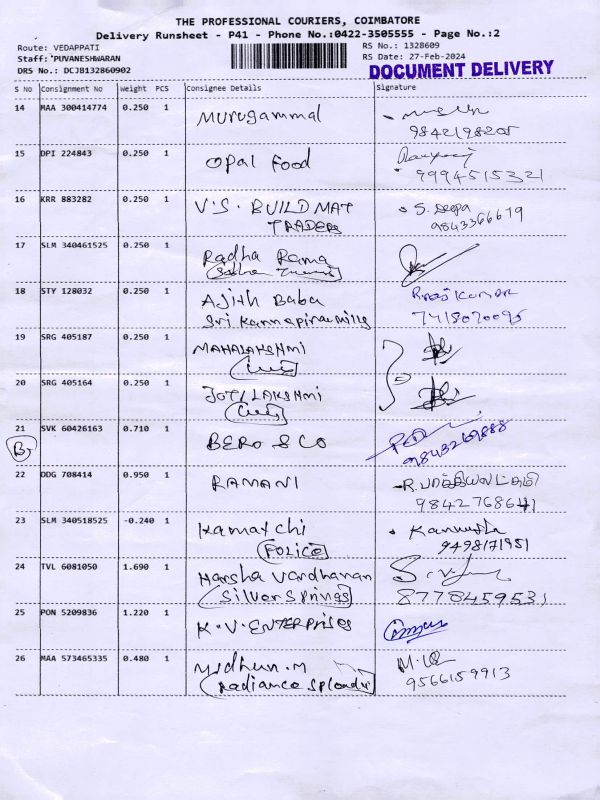 THE PROFESSIONAL COURIERS, COIMBATORE
Delivery Runsheet - P41 - Phone No.:0422-3505555 - Page No.:2
Route: VEDAPPATI
RS No.: 1328609
Staff:'PUVANESHWARAN
RS Date: 27-Feb-2024
DRS No.: DCJB132860902
DOCUMENT DELIVERY
S No Consignment No Weight PCS Consignee Details Signature
14 MAA 300414774 0.250 1 Murugammal
9842198205
15 DPI 224843 0.250 1 Opal Food
9994515321
16 KRR 883282 0.250 1 V.S. BUILD MAT S. Deepa
TRADERS 9843366679
17 SLM 340461525 0.250 1 Radha Rama
18 STY 128032 0.250 1 Ajith Baba Raj Kumar
Sri Kannapiran mills 7418070095
19 SRG 405187 0.250 1 MAHALAKSHMI
20 SRG 405164 0.250 1 JOTI LAKSHMI
21 SVK 60426163 0.710 1 BERO & CO
9843269888
22 DDG 708414 0.950 1 RAMANI R.
9842768641
23 SLM 340518525 -0.240 1 Kamatchi
(POLICE) 9498171951
24 TVL 6081050 1.690 1 Harsha Vardhanan
(Silver Springs) 8778459531
25 PON 5209836 1.220 1 K.V. ENTERPRISES
26 MAA 573465335 0.480 1 Midhun.M
(Radiance Splendor 9566159913